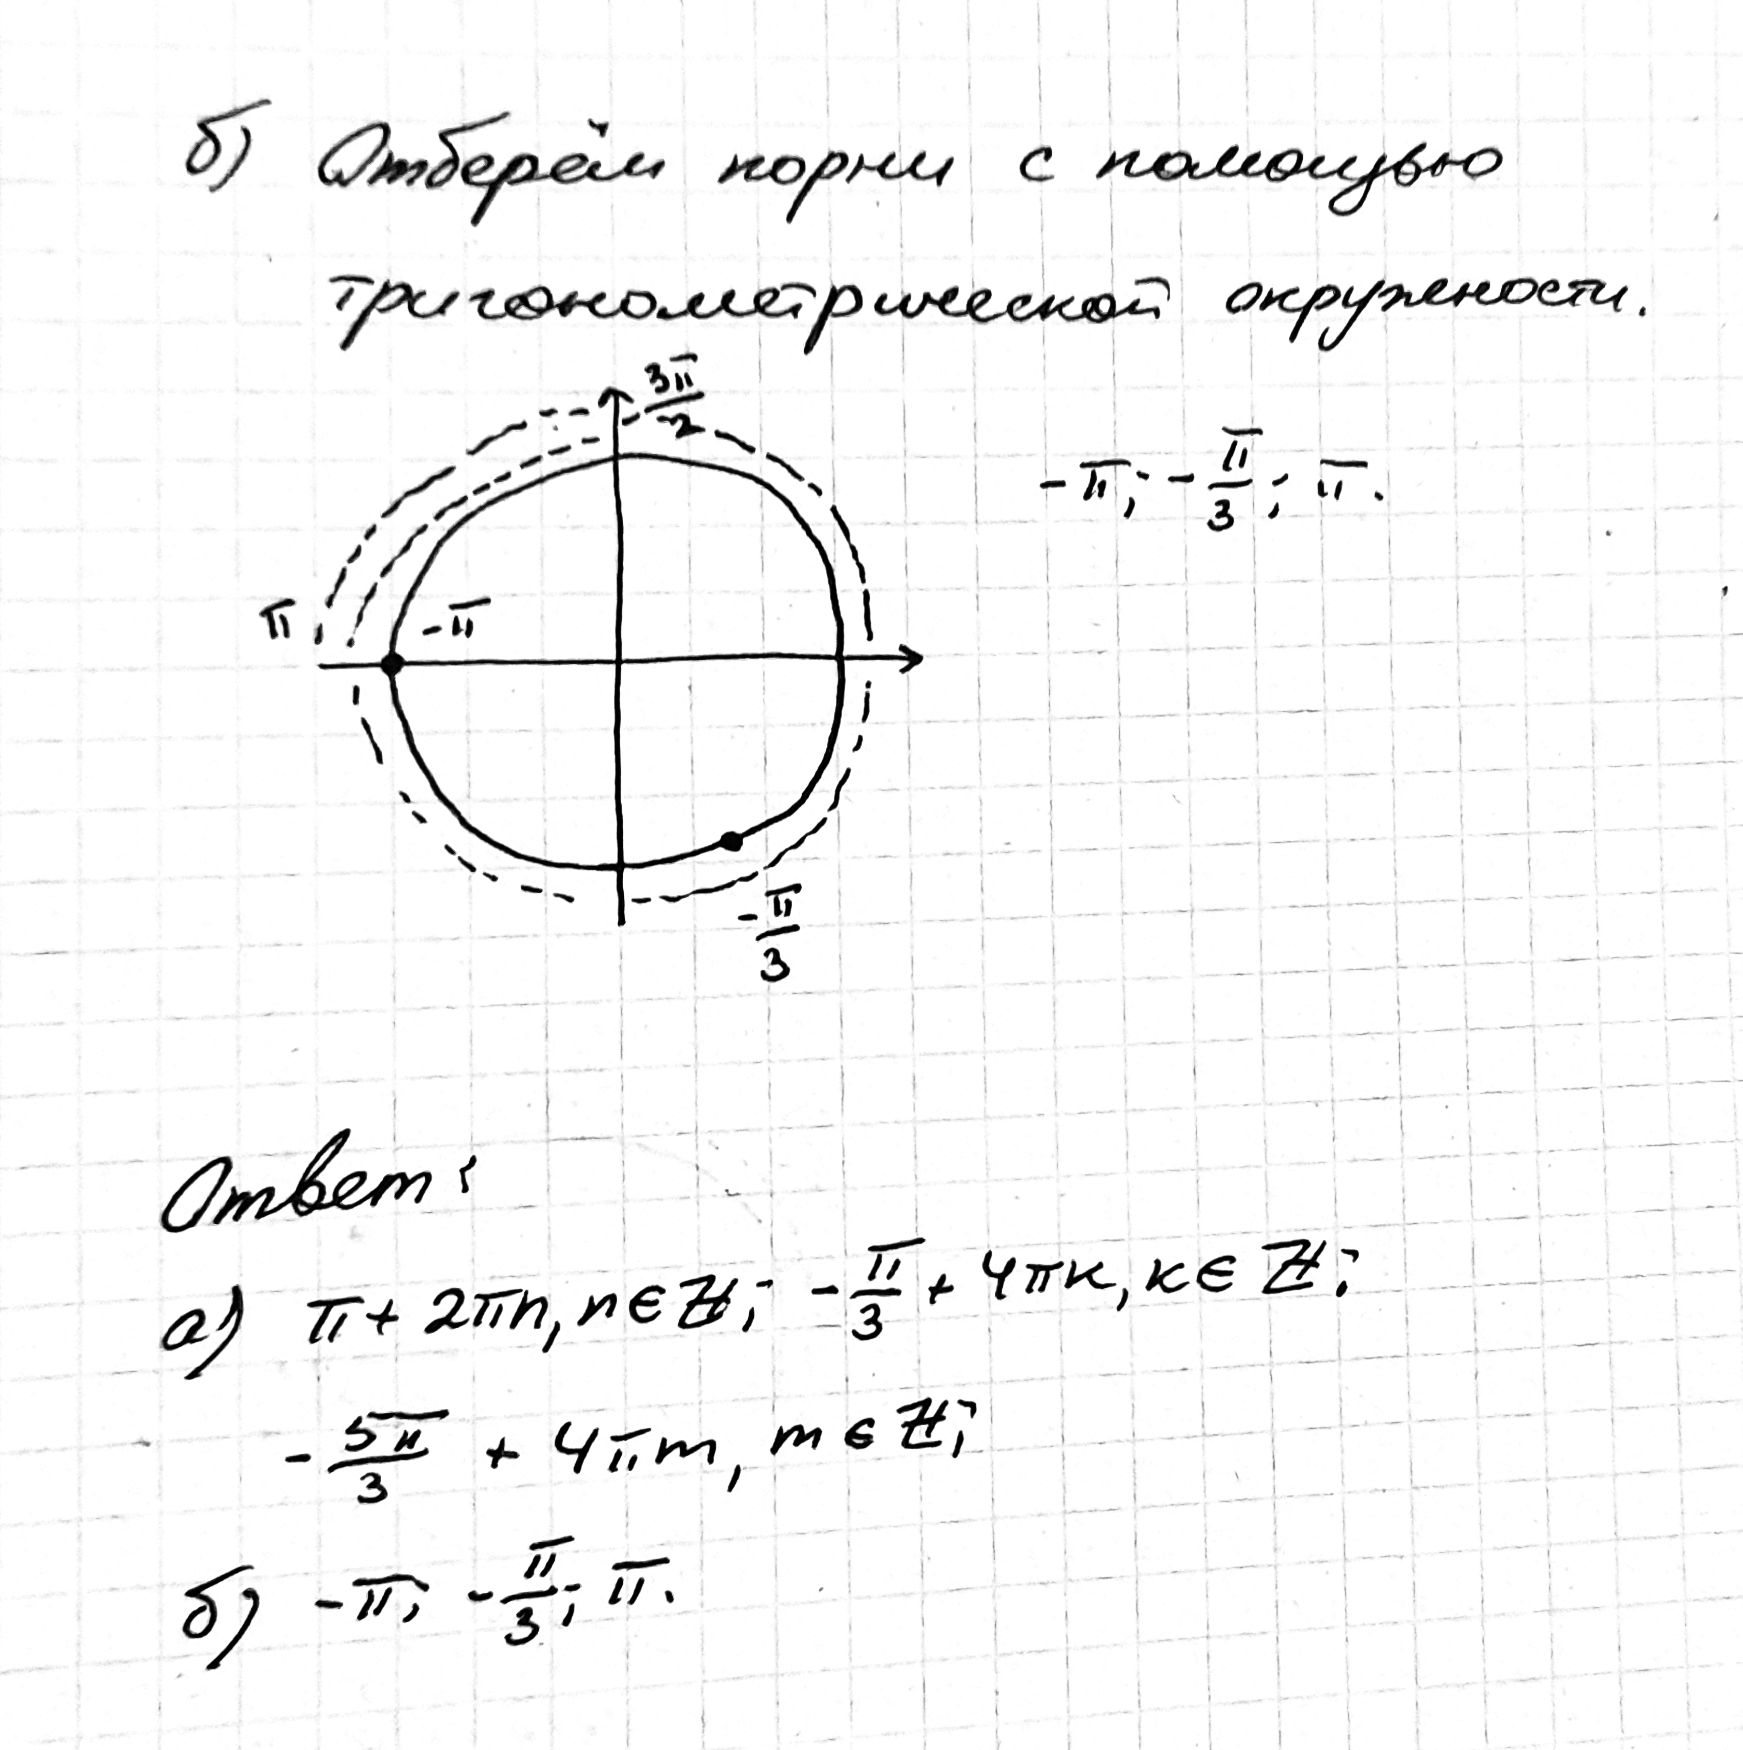 б) Отберём корни с помощью
тригонометрической окружности.
3π/2
-π; -π/3; π.
π
-π
-π/3
Ответ:
а) π + 2πn, n ∈ ℤ; -π/3 + 4πk, k ∈ ℤ;
-5π/3 + 4πm, m ∈ ℤ;
б) -π; -π/3; π.